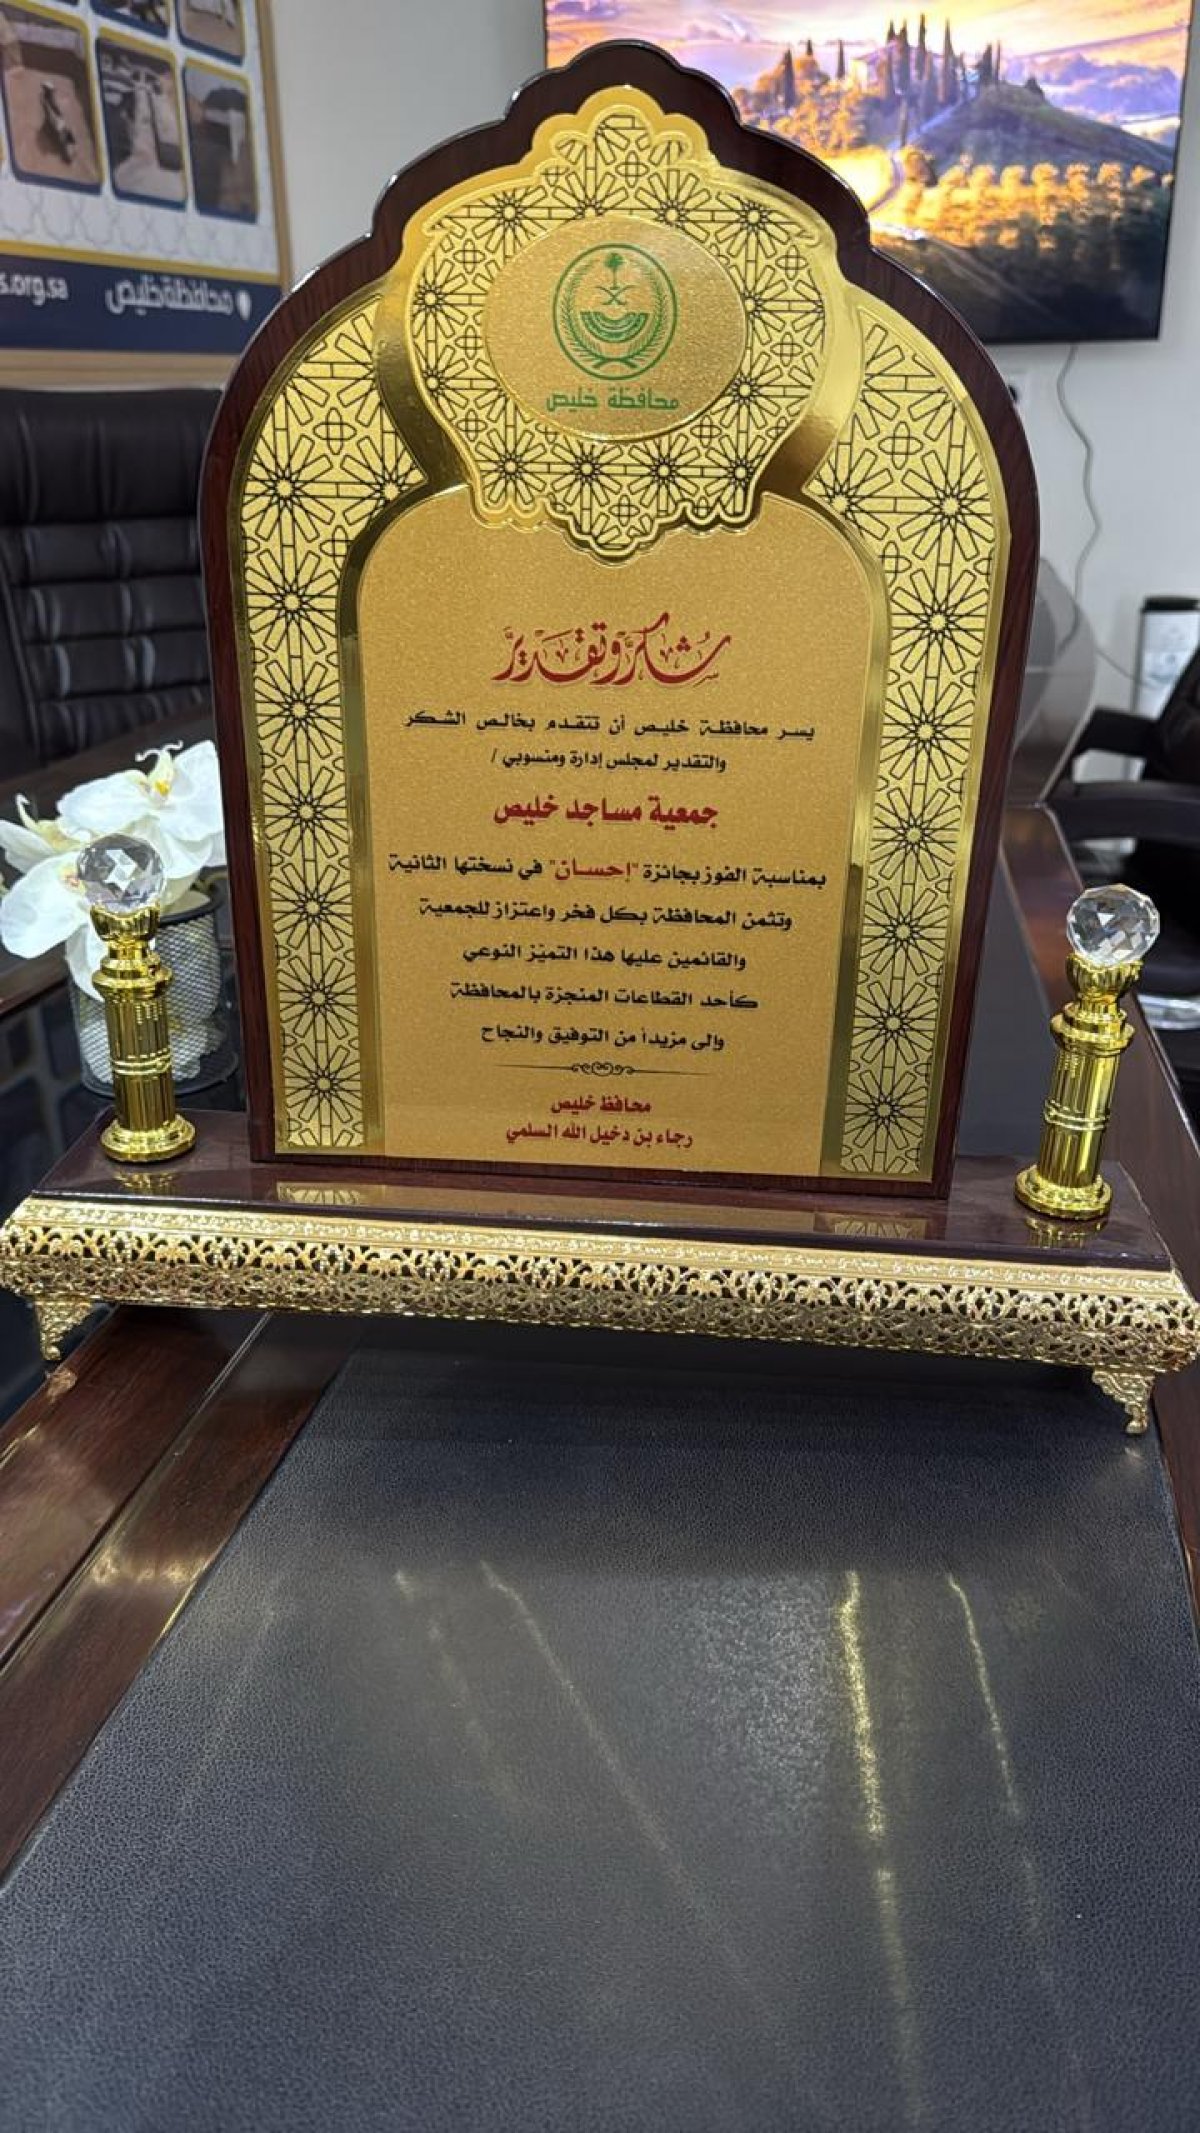 s.org.sa
محافظة خليص
محافظة خليص
شكر وتقدير
يسر محافظة خليص أن تتقدم بخالص الشكر
والتقدير لمجلس إدارة ومنسوبي /
جمعية مساجد خليص
بمناسبة الفوز بجائزة "إحسان" في نسختها الثانية
وتثمن المحافظة بكل فخر واعتزاز للجمعية
والقائمين عليها هذا التميّز النوعي
كأحد القطاعات المنجزة بالمحافظة
وإلى مزيداً من التوفيق والنجاح
محافظ خليص
رجاء بن دخيل الله السلمي